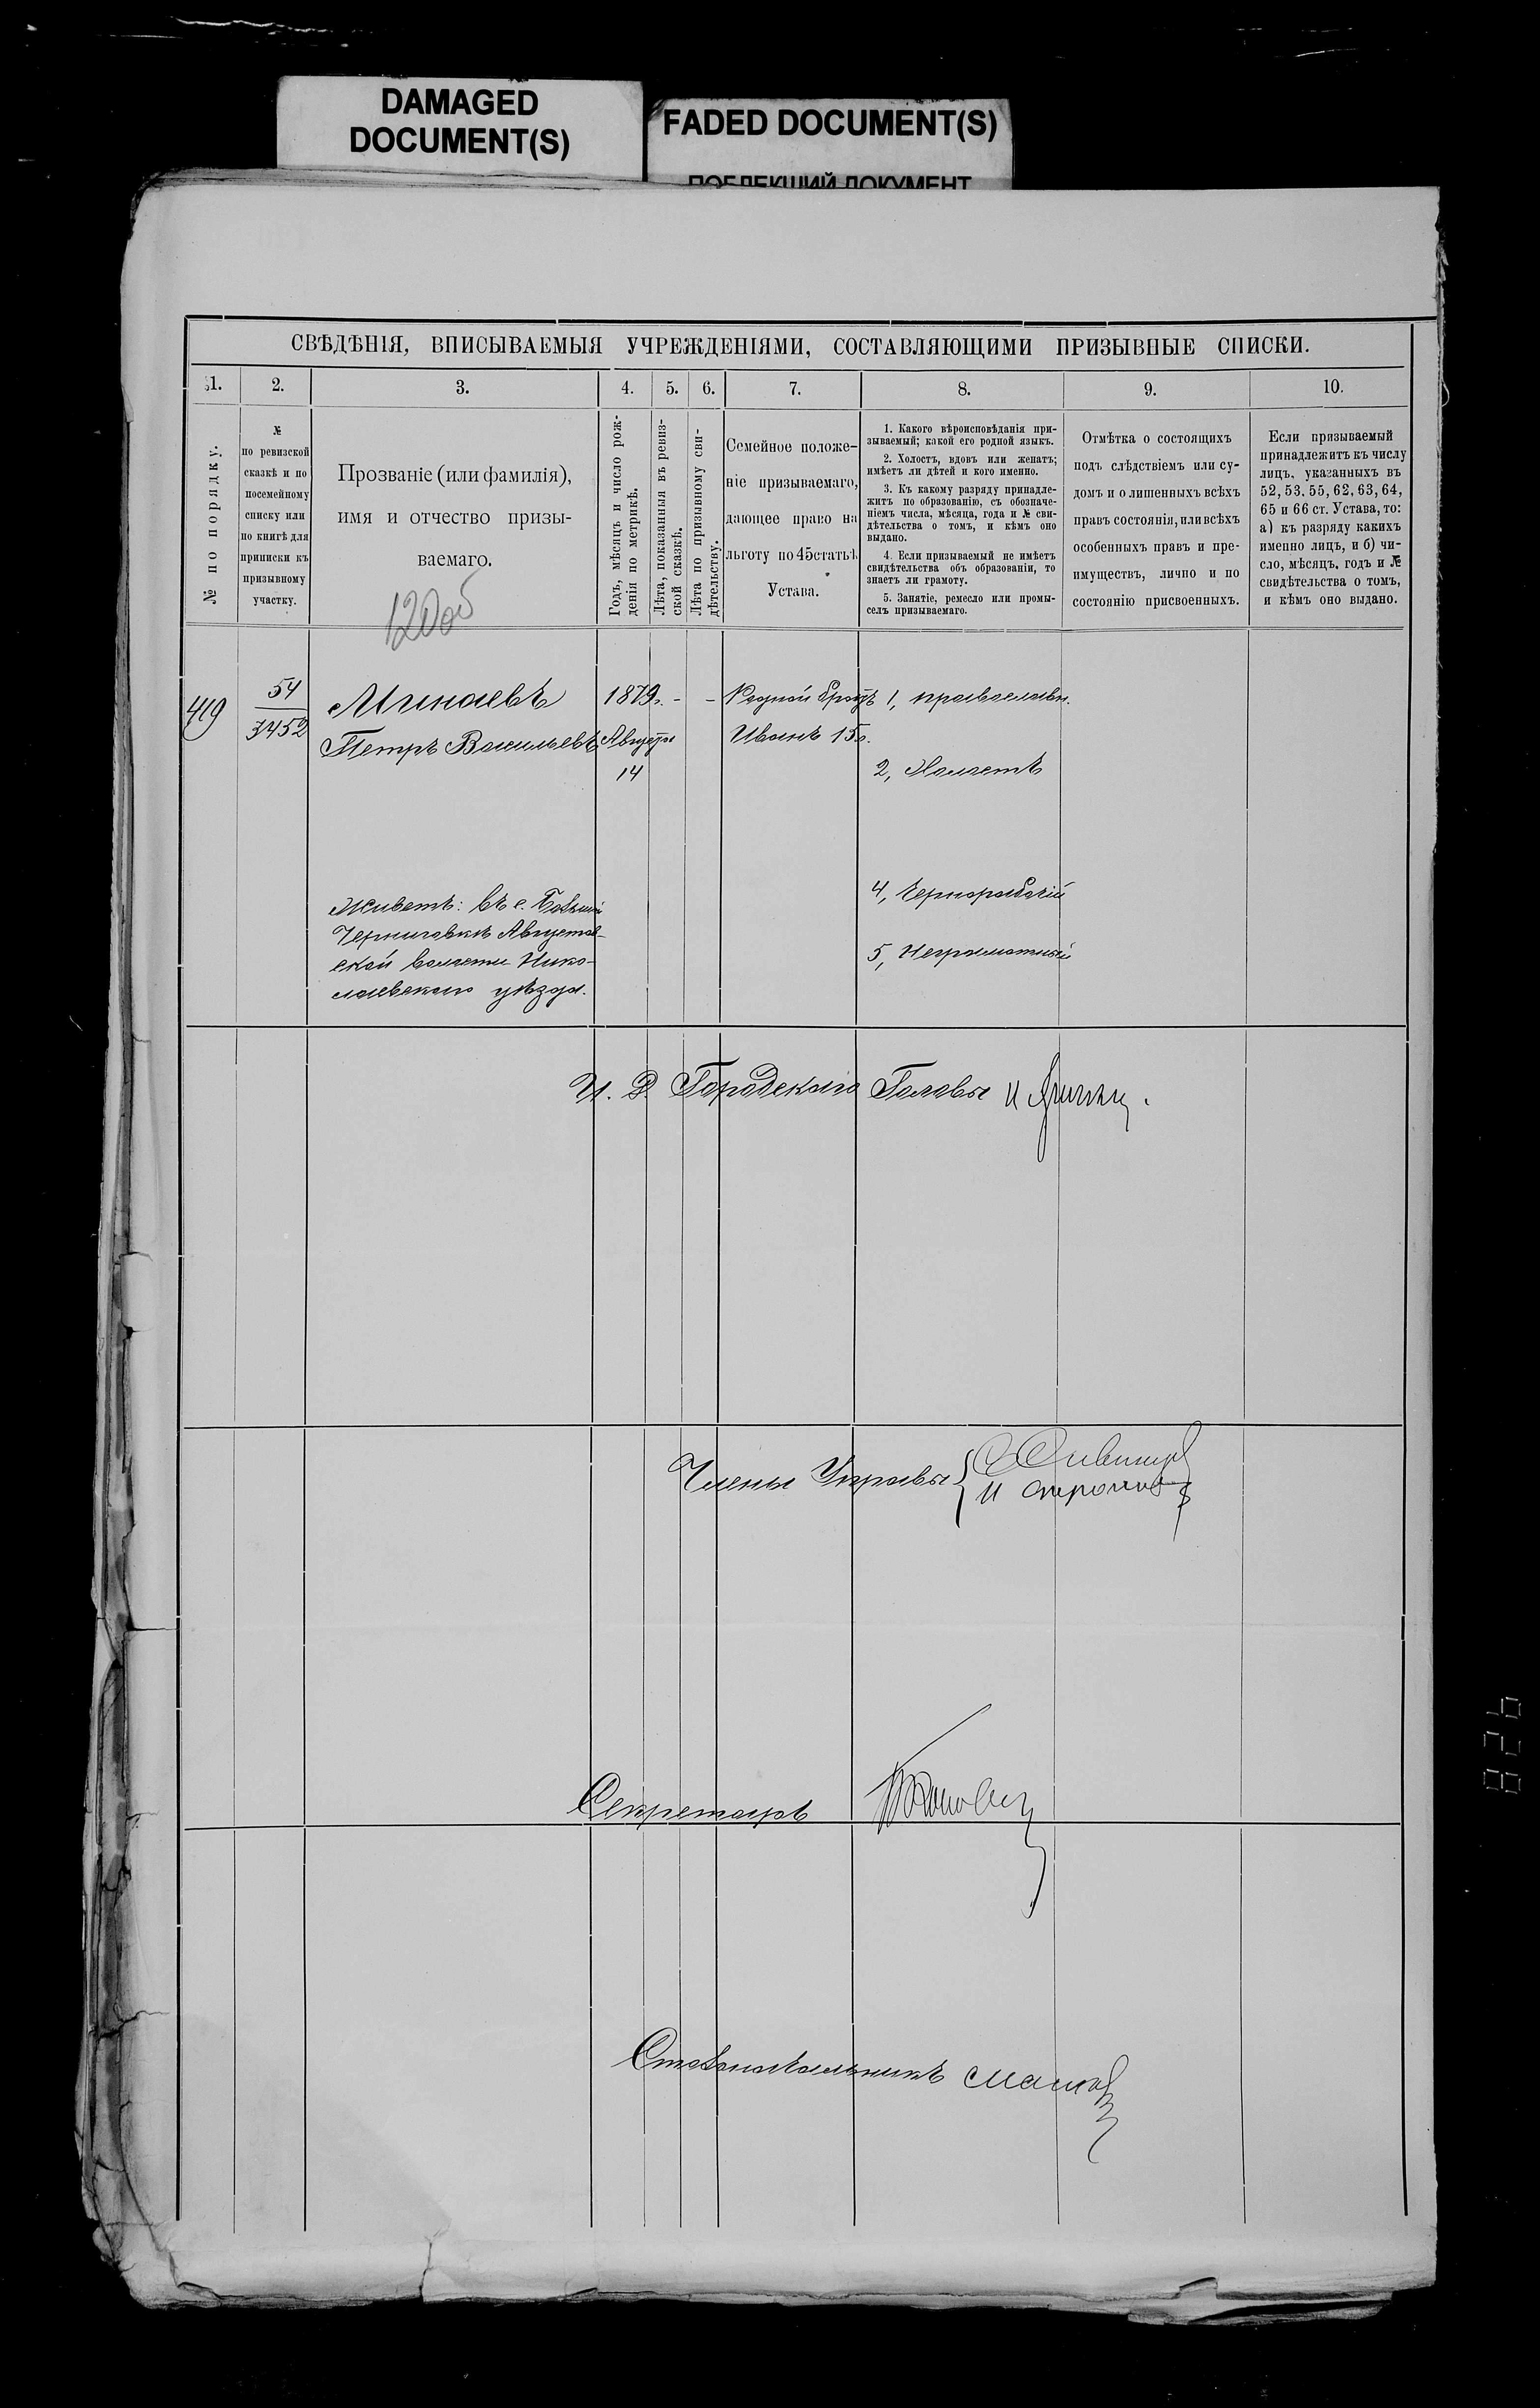 DAMAGED
DOCUMENT(S)
FADED DOCUMENT(S)
ПОБЛЕКШИЙ ДОКУМЕНТ
СВѢДѢНІЯ, ВПИСЫВАЕМЫЯ УЧРЕЖДЕНІЯМИ, СОСТАВЛЯЮЩИМИ ПРИЗЫВНЫЕ СПИСКИ.
1.
№ по порядку.
2.
№
по ревизской
сказкѣ и по
посемейному
списку или
по книгѣ для
приписки къ
призывному
участку.
3.
Прозваніе (или фамилія),
имя и отчество призы-
ваемаго.
120об
4.
Годъ, мѣсяцъ и число рож-
денія по метрикѣ.
5.
Лѣта, показанныя въ ревиз-
ской сказкѣ.
6.
Лѣта по призывному сви-
дѣтельству.
7.
Семейное положе-
ніе призываемаго,
дающее право на
льготу по 45 статьѣ
Устава.
8.
1. Какого вѣроисповѣданія при-
зываемый; какой его родной языкъ.
2. Холостъ, вдовъ или женатъ;
имѣетъ ли дѣтей и кого именно.
3. Къ какому разряду принадле-
житъ по образованію, съ обозначе-
ніемъ числа, мѣсяца, года и № сви-
дѣтельства о томъ, и кѣмъ оно
выдано.
4. Если призываемый не имѣетъ
свидѣтельства объ образованіи, то
знаетъ ли грамоту.
5. Занятіе, ремесло или промы-
селъ призываемаго.
9.
Отмѣтка о состоящихъ
подъ слѣдствіемъ или су-
домъ и о лишенныхъ всѣхъ
правъ состоянія, или всѣхъ
особенныхъ правъ и пре-
имуществъ, лично и по
состоянію присвоенныхъ.
10.
Если призываемый
принадлежитъ къ числу
лицъ, указанныхъ въ
52, 53, 55, 62, 63, 64,
65 и 66 ст. Устава, то:
а) къ разряду какихъ
именно лицъ, и б) чи-
сло, мѣсяцъ, годъ и №
свидѣтельства о томъ,
и кѣмъ оно выдано.
419
54
3452
Минаевъ
Петръ Васильевъ
Живетъ: въ с. Большой
Черниговкѣ Августов-
ской волости Нико-
лаевскаго уѣзда.
1879г.
Августа
14
-
-
Родной братъ
Иванъ 15л.
1, православн.
2, Холостъ
4, Чернорабочій
5, Неграмотный
И. Д. Городскаго Головы
Члены Управы
Секретарь
Столоначальникъ
826